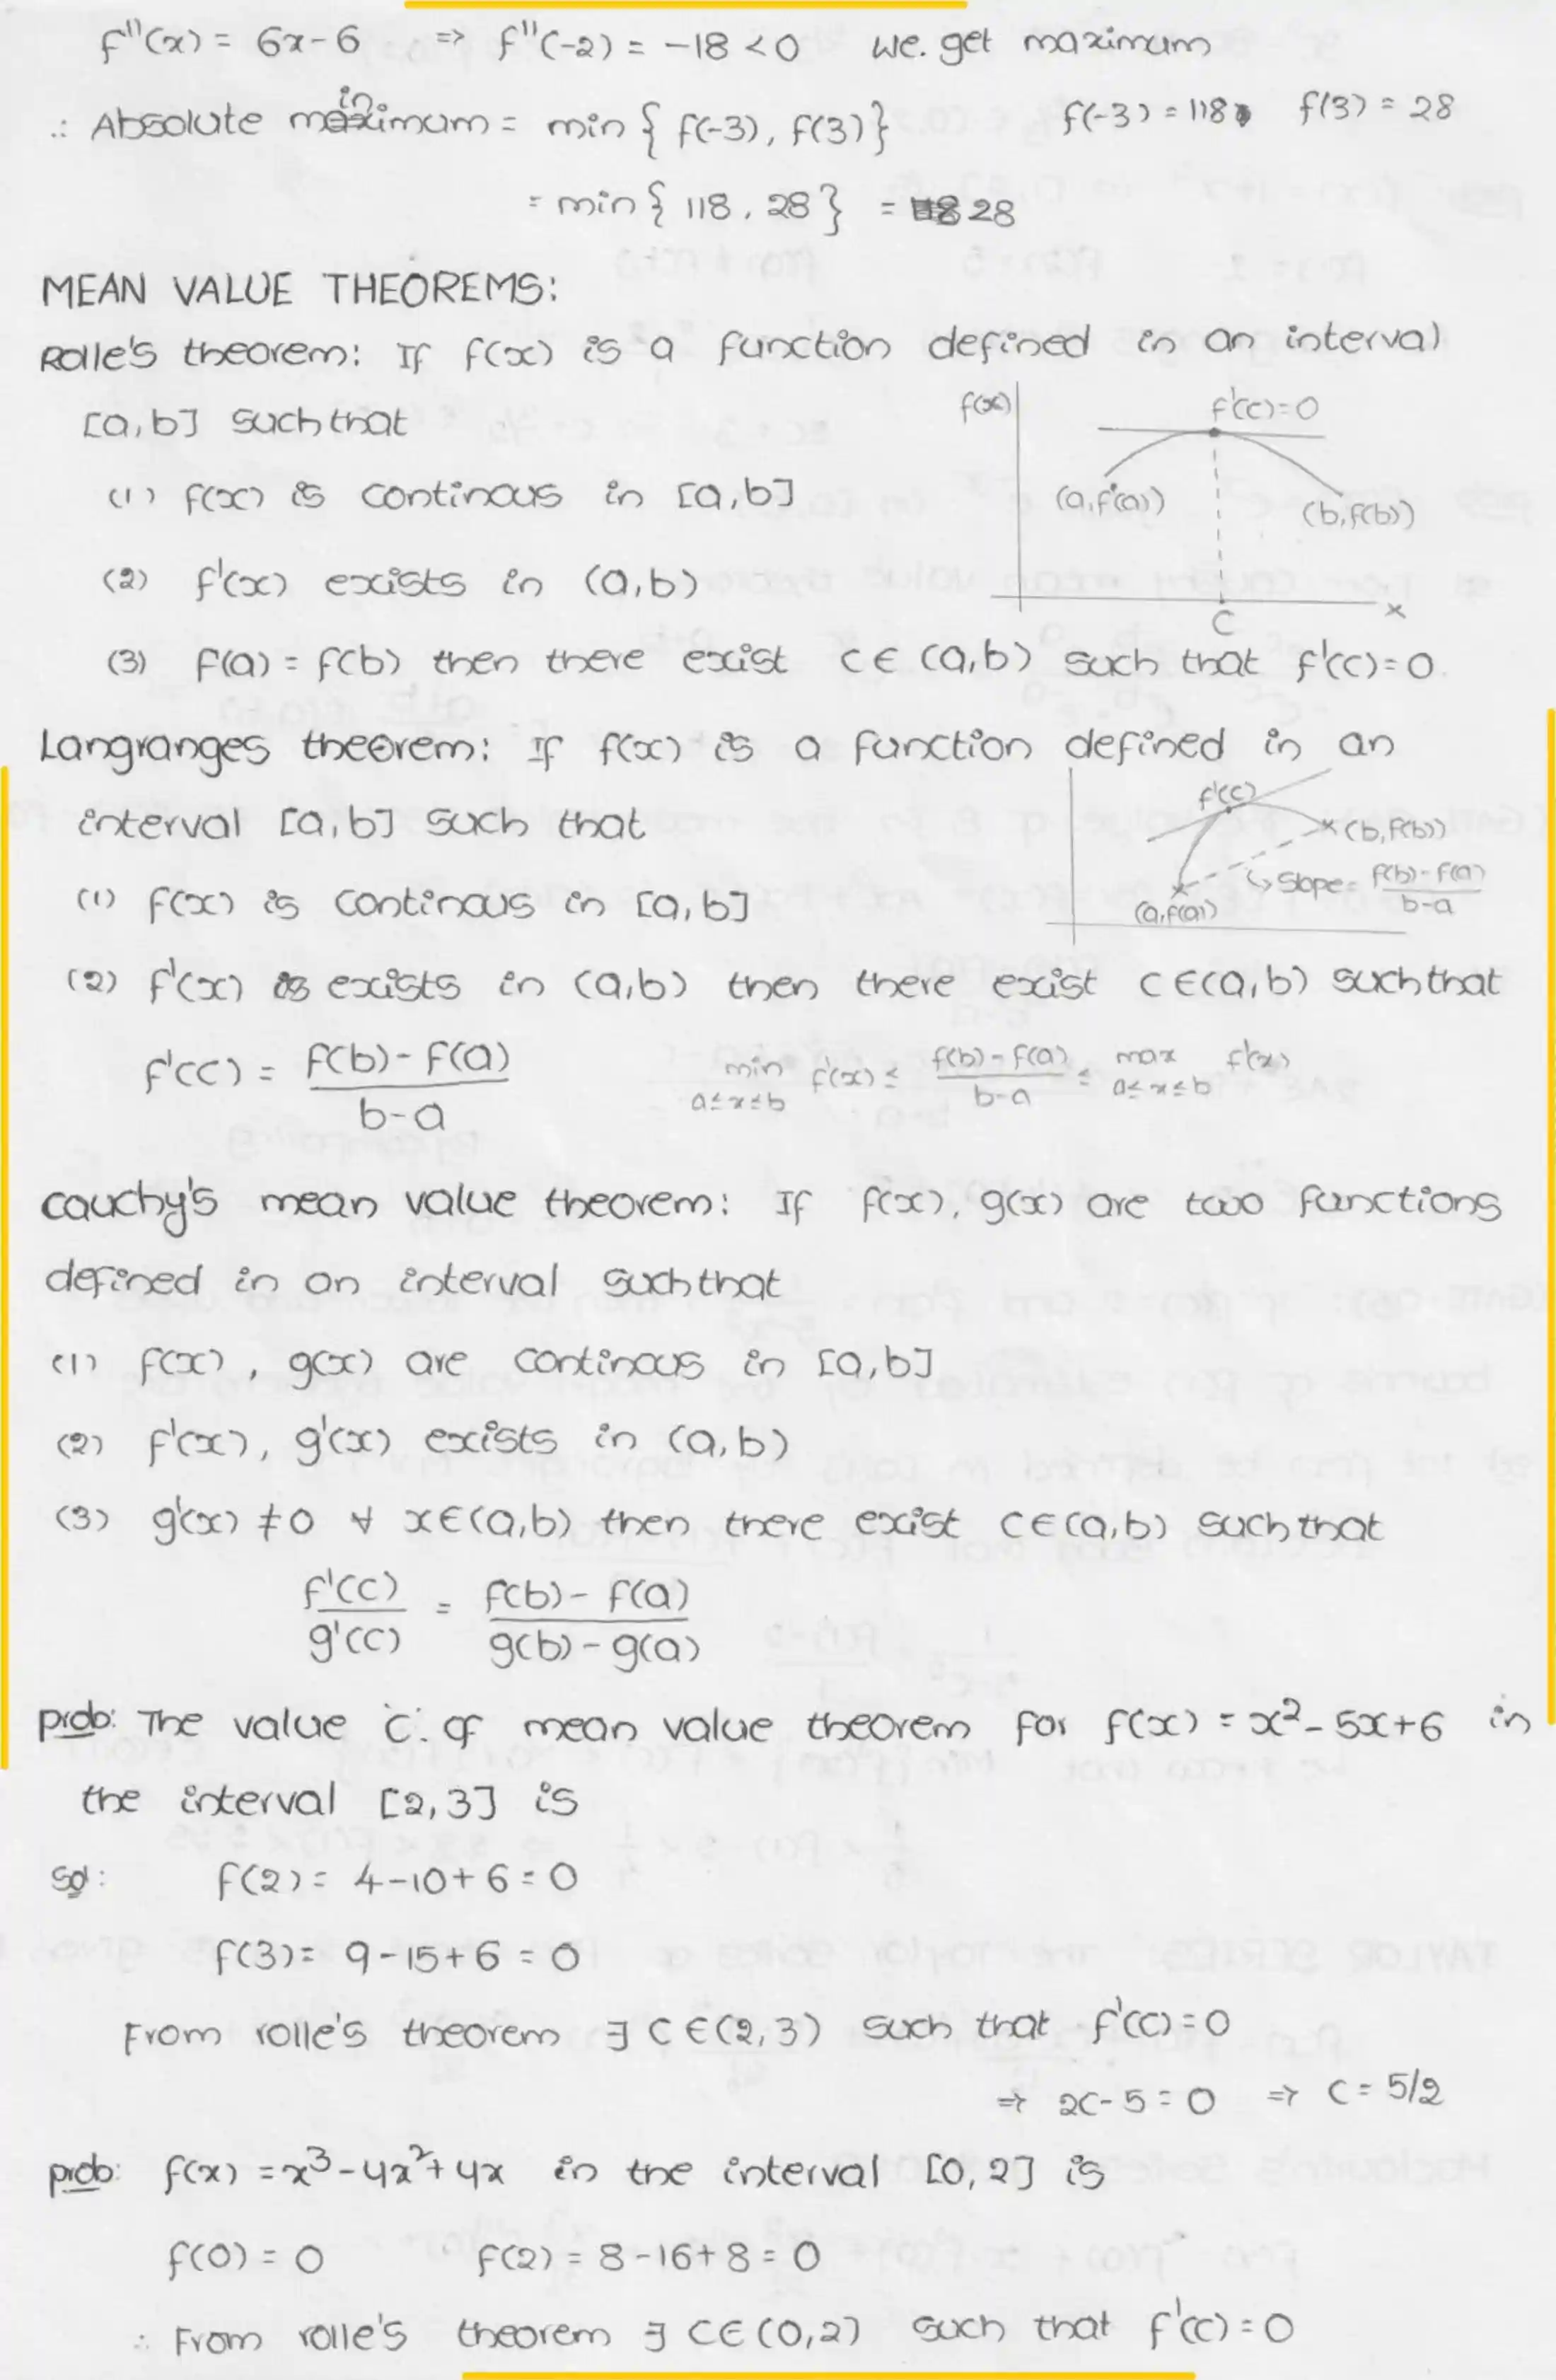 f''(x) = 6x-6 => f''(-2) = -18 < 0 we. get maximum
∴ Absolute minimum = min { f(-3), f(3)} f(-3) = 118 f(3) = 28
= min { 118, 28 } = 28
MEAN VALUE THEOREMS:
Rolle's theorem: If f(x) is a function defined in an interval
[a,b] such that
f(x) f'(c)=0
(1) f(x) is continous in [a,b]
(a,f(a)) (b,f(b))
(2) f'(x) exists in (a,b)
x
c
(3) f(a) = f(b) then there exist c∈(a,b) such that f'(c)=0.
Langranges theorem: If f(x) is a function defined in an
f'(c)
interval [a,b] such that
(b,f(b))
↳ Slope = f(b)-f(a)/b-a
(1) f(x) is continous in [a,b]
(a,f(a))
(2) f'(x) is exists in (a,b) then there exist c∈(a,b) such that
f'(c) = f(b)-f(a)/b-a min a≤x≤b f'(x) ≤ f(b)-f(a)/b-a ≤ max a≤x≤b f'(x)
Cauchy's mean value theorem: If f(x), g(x) are two functions
defined in an interval such that
(1) f(x), g(x) are continous in [a,b]
(2) f'(x), g'(x) exists in (a,b)
(3) g'(x) ≠ 0 ∀ x∈(a,b) then there exist c∈(a,b) such that
f'(c)/g'(c) = f(b)-f(a)/g(b)-g(a)
prob: The value 'c'. of mean value theorem for f(x) = x²-5x+6 in
the interval [2,3] is
Sol: f(2) = 4-10+6 = 0
f(3) = 9-15+6 = 0
From rolle's theorem ∃ c∈(2,3) such that f'(c)=0
=> 2c-5=0 => c = 5/2
prob: f(x) = x³-4x²+4x in the interval [0,2] is
f(0) = 0 f(2) = 8-16+8 = 0
∴ From rolle's theorem ∃ c∈(0,2) such that f'(c)=0